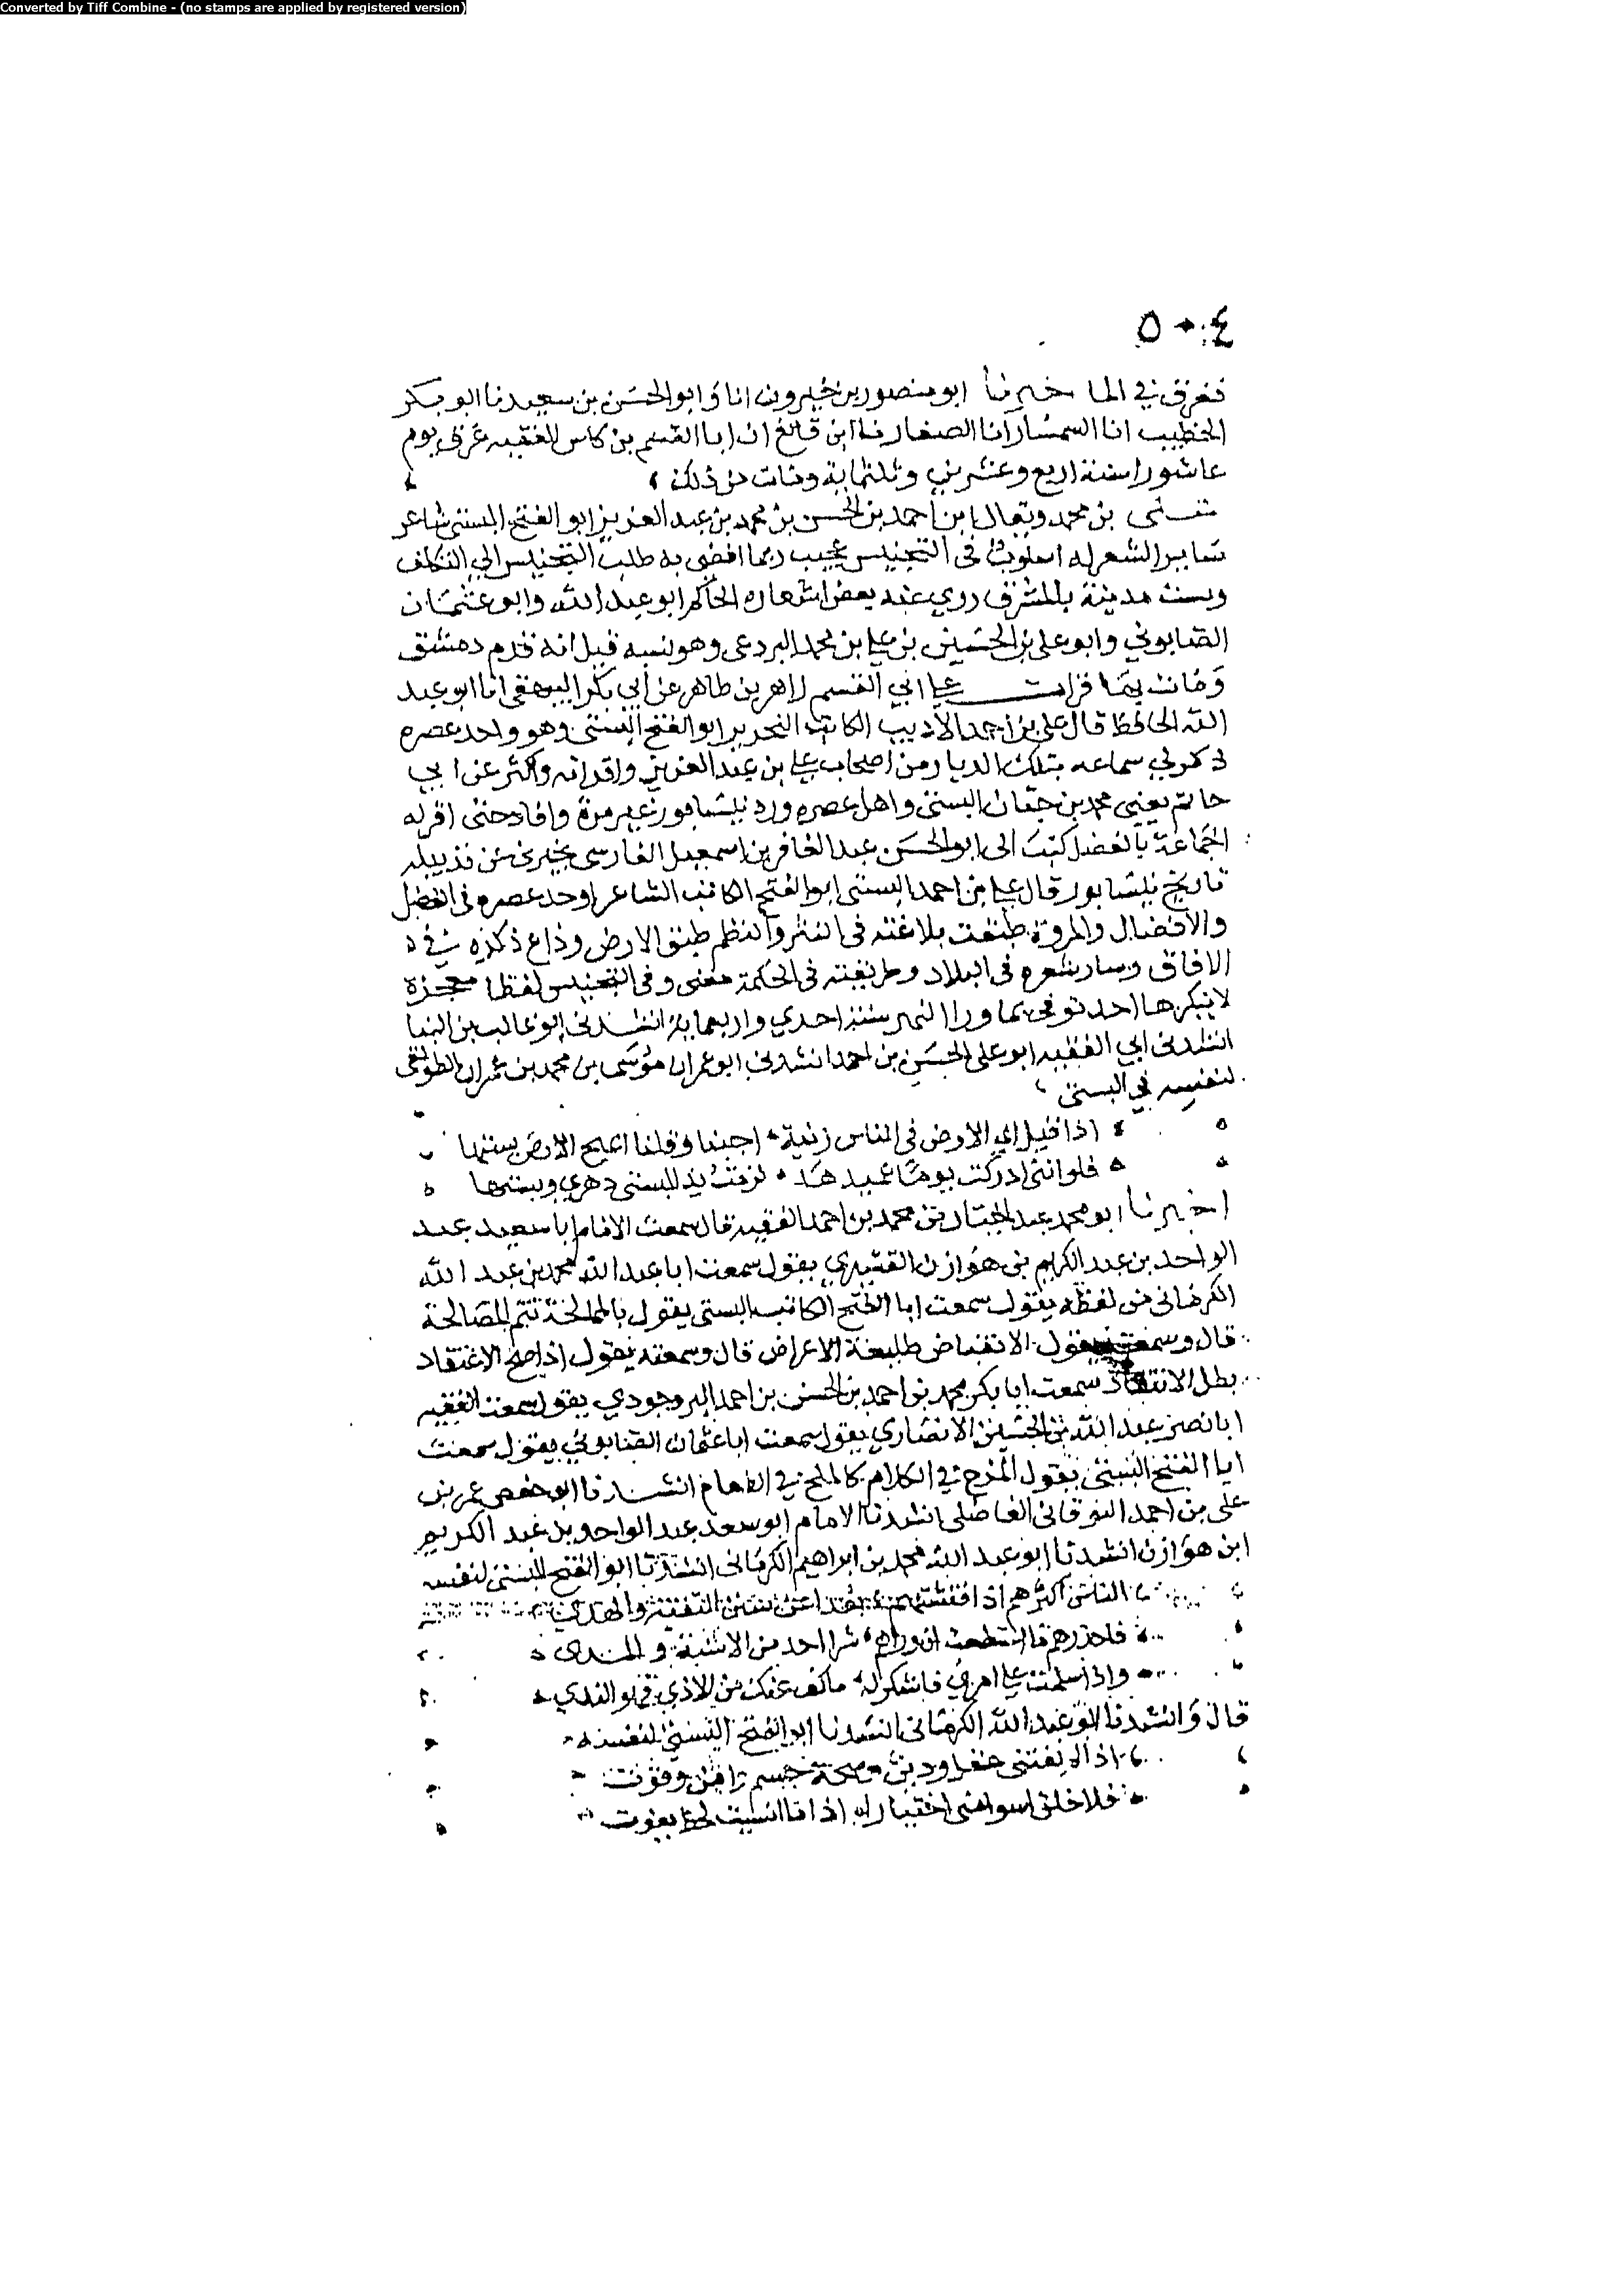 Converted by Tiff Combine - (no stamps are applied by registered version)
٥٠٤
فغرق في الما اخبرنا ابو منصور بن خيرون انا وابو الحسن بن سعيد نا ابو بكر
الخطيب انا السمسار انا الصفار نا ابن قانع ان ابا القسم بن كاس الفقيه غرق يوم
عاشورا سنة اربع وعشرين وثلثماية ومات من ذلك
بن محمد ويقال ابن احمد بن الحسن بن محمد بن عبد العزيز ابو الفتح البستي شاعر
ساير الشعر له اسلوب في التجنيس عجيب ربما افضى به طلب التجنيس الي التكلف
وبست مدينة بالمشرق روي عنه بعض اشعاره الحاكم ابو عبد الله وابو عثمان
الصابوني وابو علي بن الحسين بن علي بن محمد البردعي وهو نسبه قيل انه قدم دمشق
ومات بها قرات علي ابي القسم زاهر بن طاهر عن ابي بكر البيهقي انا ابو عبد
الله الحافظ قال علي بن احمد الاديب الكاتب النحرير ابو الفتح البستي وهو واحد عصره
ذكر لي سماعه بتلك الديار من اصحاب علي بن عبد العزيز واقرانه واكثر عن ابي
حاتم يعني محمد بن حبان البستي واهل عصره ورد نيسابور غير مرة وافاد حتى اقر له
الجماعة بالفضل كتب الي ابو الحسن عبد الغافر بن اسمعيل الفارسي يخبرني عن تذييله
تاريخ نيسابور قال علي بن احمد البستي ابو الفتح الكاتب الشاعر اوحد عصره في الفضل
والافضال والمروة طبقت بلاغته في النثر والنظم طبق الارض وذاع ذكره في
الافاق وسار شعره في البلاد وطريقته في الحكمة معنى وفي التجنيس لفظا معجزة
لا ينكرها احد توفي بما ورا النهر سنة احدي واربعماية انشدني ابو غالب بن البنا
انشدني ابي الفقيه ابو علي الحسن بن احمد انشدني ابو عمران موسى بن محمد بن عمران الطولقي
لنفسه في البستي
اذا قيل اي الارض في الناس زينة اجبنا وقلنا ابهج الارض بستها
فلو انني ادركت يوما عميدها لزمت يد البستي دهري وبستها
اخبرنا ابو محمد عبد الجبار بن محمد بن احمد الفقيه قال سمعت الامام ابا سعيد عبد
الواحد بن عبد الكريم بن هوازن القشيري يقول سمعت ابا عبد الله محمد بن عبد الله
الكرماني من لفظه يقول سمعت ابا الفتح الكاتب البستي يقول بالممالحة تتم المصالحة
قال وسمعته يقول الانقباض طليعة الاعراض قال وسمعته يقول اذا صح الاعتقاد
بطل الانتقاد سمعت ابا بكر محمد بن احمد بن الحسن بن احمد البروجردي يقول سمعت الفقيه
ابا نصر عبد الله بن الحسين الانصاري يقول سمعت ابا عثمان الصابوني يقول سمعت
ابا الفتح البستي يقول المزح في الكلام كالملح في الطعام انشدنا ابو حفص عمر بن
علي بن احمد النوقاني الفاضلي انشدنا الامام ابو سعد عبد الواحد بن عبد الكريم
ابن هوازن انشدنا ابو عبد الله محمد بن ابراهيم الكرماني انشدنا ابو الفتح البستي لنفسه
الناس اكثرهم اذا فتشتهم عن سنن التقية والهدى
فاحذرهم ما استطعت ان وراهم شرا احد من الاسنة والمدى
واذا سلمت علي امرئ فاشكر له ما كف عنك من الاذي فهو الندي
قال وانشدنا ابو عبد الله الكرماني انشدنا ابو الفتح البستي لنفسه
اذا لا يفتني صحة جسم وقوت
فلا خلق اسوا مني اختيارا اذا ما اسيت لحظ يفوت